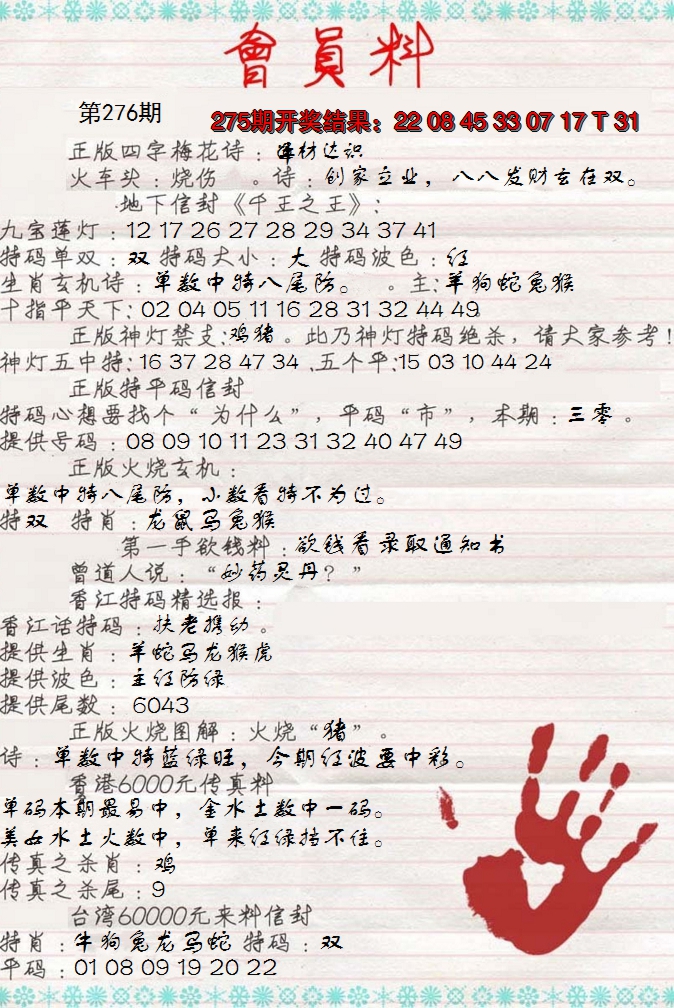 會員料
第276期
275期开奖结果：22 08 45 33 07 17 T 31
正版四字梅花诗：泽材达识
火车头：烧伤 。诗：创家立业，八八发财玄在双。
地下信封《千王之王》：
九宝莲灯：12 17 26 27 28 29 34 37 41
特码单双：双 特码大小：大 特码波色：红
生肖玄机诗：单数中特八尾防。 。主：羊狗蛇兔猴
十指平天下：02 04 05 11 16 28 31 32 44 49
正版神灯禁支：鸡猪。此乃神灯特码绝杀，请大家参考！
神灯五中特：16 37 28 47 34 .五个平：15 03 10 44 24
正版特平码信封
特码心想要找个“为什么”，平码“市”，本期：三零。
提供号码：08 09 10 11 23 31 32 40 47 49
正版火烧玄机：
单数中特八尾防，小数看特不为过。
特双 特肖：龙鼠马兔猴
第一手欲钱料：欲钱看录取通知书
曾道人说：“妙药灵丹？”
香江特码精选报：
香江话特码：扶老携幼。
提供生肖：羊蛇马龙猴虎
提供波色：主红防绿
提供尾数：6043
正版火烧图解：火烧“猪”。
诗：单数中特蓝绿旺，今期红波要中彩。
香港6000元传真料
单码本期最易中，金水土数中一码。
美女水土火数中，单来红绿挡不住。
传真之杀肖：鸡
传真之杀尾：9
台湾60000元来料信封
特肖：牛狗兔龙马蛇 特码：双
平码：01 08 09 19 20 22